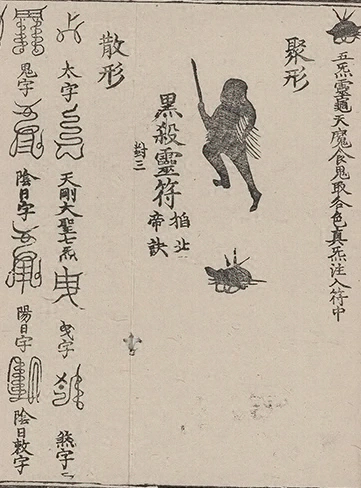 五炁靈龜天魔食鬼取各色真炁注入符中
聚形
黑殺靈符
掐北
帝訣
散形
太字
天剛大聖七炁
曳字
煞字二
鬼字
陰日字
陽日字
陰日敕字